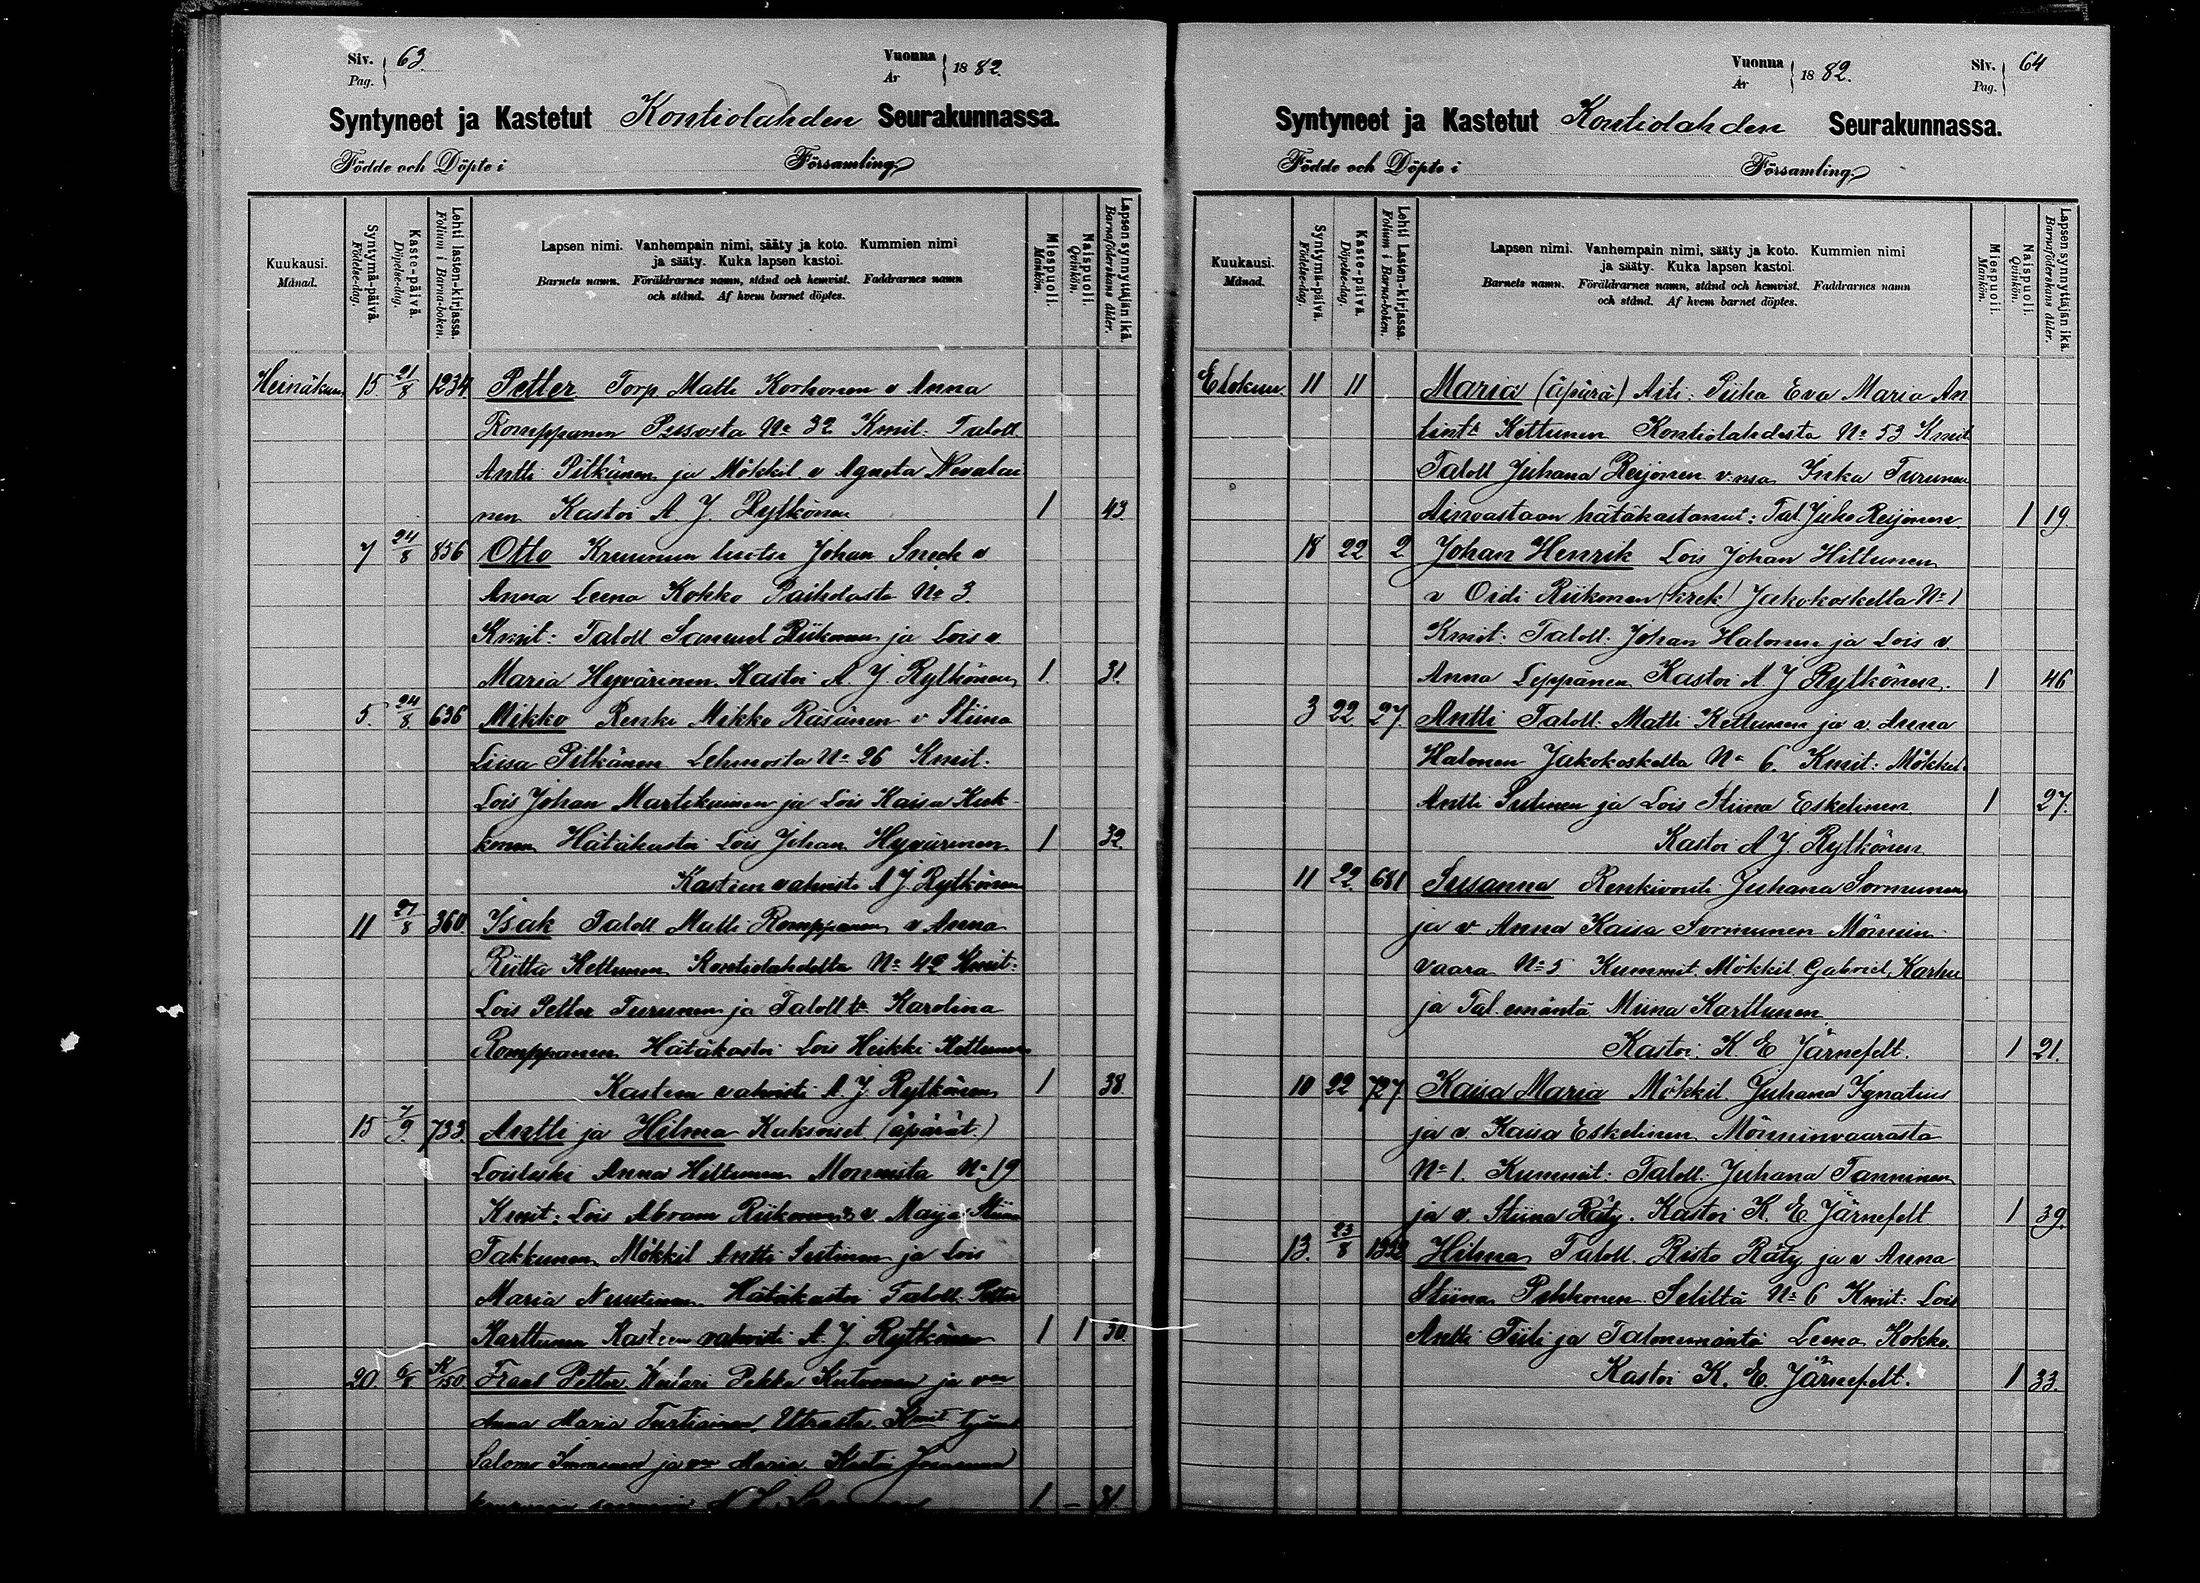 Siv. 63
Pag.
Vuonna 1882.
År
Syntyneet ja Kastetut Kontiolahden Seurakunnassa.
Födde och Döpte i Församling.
Kuukausi.
Månad.
Syntymä-päivä.
Födelse-dag.
Kaste-päivä.
Döpelse-dag.
Lehti lasten-kirjassa.
Folium i Barna-boken.
Lapsen nimi. Vanhempain nimi, sääty ja koto. Kummien nimi
ja sääty. Kuka lapsen kastoi.
Barnets namn. Föräldrarnes namn, stånd och hemvist. Faddrarnes namn
och stånd. Af hvem barnet döptes.
Miespuoli.
Mankön.
Naispuoli.
Qvinkön.
Lapsen synnyttäjän ikä.
Barnaföderskans ålder.
Heinäkuu 15 21/8 1234 Petter Torp Matti Korhonen v Anna
Romppanen Pusosta No 32 Kmit: Taloll
Antti Pitkänen ja Mökkil. v Agneta Nevalai
nen Kastoi A. J. Rytkönen 1 43
7 24/8 856 Otto Kruunun Johan v
Anna Leena Kokko Paihdosta No 3.
Kmit: Taloll Samuel Riikonen ja Lois v
Maria Hyvärinen. Kastoi A. J. Rytkönen 1. 31
5. 24/8. 636 Mikko Renki Mikko Räsänen v Stiina
Liisa Pitkänen Lehmosta No 26 Kmit.
Lois Johan Martikainen ja Lois Kaisa Kuk
konen Hätäkastoi Lois Johan Hyvärinen 1 32.
Kasteen vahvisti A J. Rytkönen
11 27/8 360 Isak Taloll Matti Romppanen v Anna
Riitta Kettunen Kontiolahdelta No 42 Kmit:
Lois Petter Turunen ja Taloll tr Karolina
Romppanen Hätäkastoi Lois Heikki Kettunen
Kasteen vahvisti A. J. Rytkönen 1 38.
15 7/9. 733. Antti ja Hilma Kaksoiset (äpärät.)
Loisleski Anna Hiltunen Monnista No 19
Kmit: Lois Abram Riikonen v. Maija Stiina
Takkunen, Mökkil Antti Sutinen ja Lois
Maria Nuutinen. Hätäkastoi Taloll. Petter
Karttunen Kasteen vahvisti A. J. Rytkönen 1 1 30.
20. 6/8 K/50 Frans Petter Pekka ja vmo
Anna Maria Turtiainen, Utrasta. Kmit.
Salomo Immonen ja vmo Maria. Kastoi Joensuun
1 - 31
Vuonna 1882.
År
Siv. 64
Pag.
Syntyneet ja Kastetut Kontiolahden Seurakunnassa.
Födde och Döpte i Församling.
Kuukausi.
Månad.
Syntymä-päivä.
Födelse-dag.
Kaste-päivä.
Döpelse-dag.
Lehti Lasten-kirjassa.
Folium i Barna-boken.
Lapsen nimi. Vanhempain nimi, sääty ja koto. Kummien nimi
ja sääty. Kuka lapsen kastoi.
Barnets namn. Föräldrarnes namn, stånd och hemvist. Faddrarnes namn
och stånd. Af hvem barnet döptes.
Miespuoli.
Mankön.
Naispuoli.
Qvinkön.
Lapsen synnyttäjän ikä.
Barnaföderskans ålder.
Elokuu. 11 11 Maria (äpärä) Äiti: Piika Eva Maria An
tintr Kettunen Kontiolahdesta No 53 Kmit
Taloll Juhana Reijonen v:nsa Inka Turunen
Ainoastaan hätäkastanut: Tal. Juho Reijonen. 1 19
18 22 2 Johan Henrik Lois Johan Hiltunen
v Oidi Riikonen (krek) Jakokoskelta No 1
Kmit: Taloll. Johan Halonen ja Lois v.
Anna Leppänen Kastoi A. J Rytkönen. 1 46
3 22 27. Antti Taloll: Matti Kettunen ja v. Anna
Halonen Jakokoskelta No 6. Kmit: Mökkil.
Antti Sutinen ja Lois Stiina Eskelinen. 1 27.
Kastoi A J. Rytkönen
11 22. 681 Susanna Renkivouti Juhana Sormunen
ja v. Anna Kaisa Sormunen Mönnin
vaara No 5 Kummit. Mökkil. Gabriel Karhu
ja Tal. emäntä Miina Karttunen
Kastoi. K. E Järnefelt. 1 21.
10 22 727. Kaisa Maria Mökkil. Juhana Ignatius
ja v. Kaisa Eskelinen Mönninvaarasta
No 1. Kummit: Taloll. Juhana Tanninen
ja v. Stiina Räty. Kastoi K. E. Järnefelt 1 39.
13. 23/8 Hilma Taloll. Risto Räty ja v Anna
Stiina Pehkonen Seliltä No 6 Kmit: Lois
Antti Tiili ja Talonemäntä Leena Kokko.
Kastoi K. E. Järnefelt. 1 33.